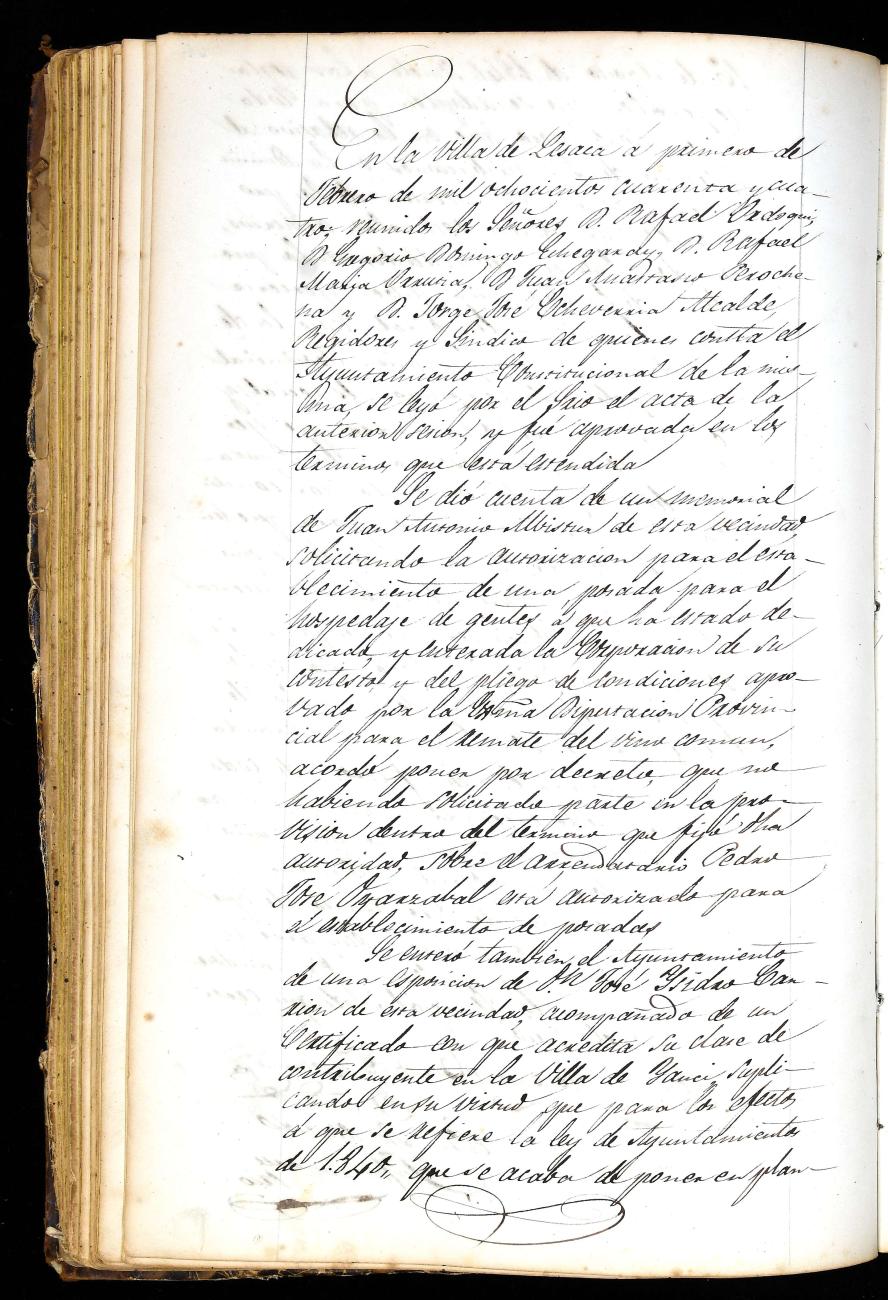 En la Villa de Lesaca á primero de
Febrero de mil ochocientos cuarenta y cua-
tro; reunidos los Señores D. Rafael Endoqui,
D Gregorio Domingo Echegaray, D. Rafael
Maria Urrutia, D Juan Anastasio Peroche-
na y D. Jorge José Echeverria Alcalde,
Regidores y Sindico de quienes contta el
Ayuntamiento Constitucional de la mis-
ma, se leyó por el Srio el acta de la
anterior sesion, y fué aprovada en los
terminos que esta estendida
Se dió cuenta de un memorial
de Juan Antonio Mvistur de esta vecindad,
solicitando la autorizacion para el esta-
blecimiento de una posada para el
hospedaje de gentes á que ha estado de-
dicada, y enterada la Corporacion de su
contesto, y del pliego de condiciones apro-
vado por la Exma Diputacion Provin-
cial para el remate del vino comun,
acordó poner por decreto, que no
habiendo solicitado parte en la pro-
vision dentro del termino que fijó dha
autoridad, sobre el arrendatario Pedro
José Oyarzabal esta autorizado para
el establecimiento de posadas
Se enteró tambien el Ayuntamiento
de una esposicion de D.n José Ysidro Can-
rion de esta vecindad, acompañado de un
Certificado con que acredita su clase de
contribuyente en la Villa de Yanci, supli-
cando en su virtud que para los efectos
á que se refiere la ley de Ayuntamientos
de 1.840,, que se acaba de poner en plan-